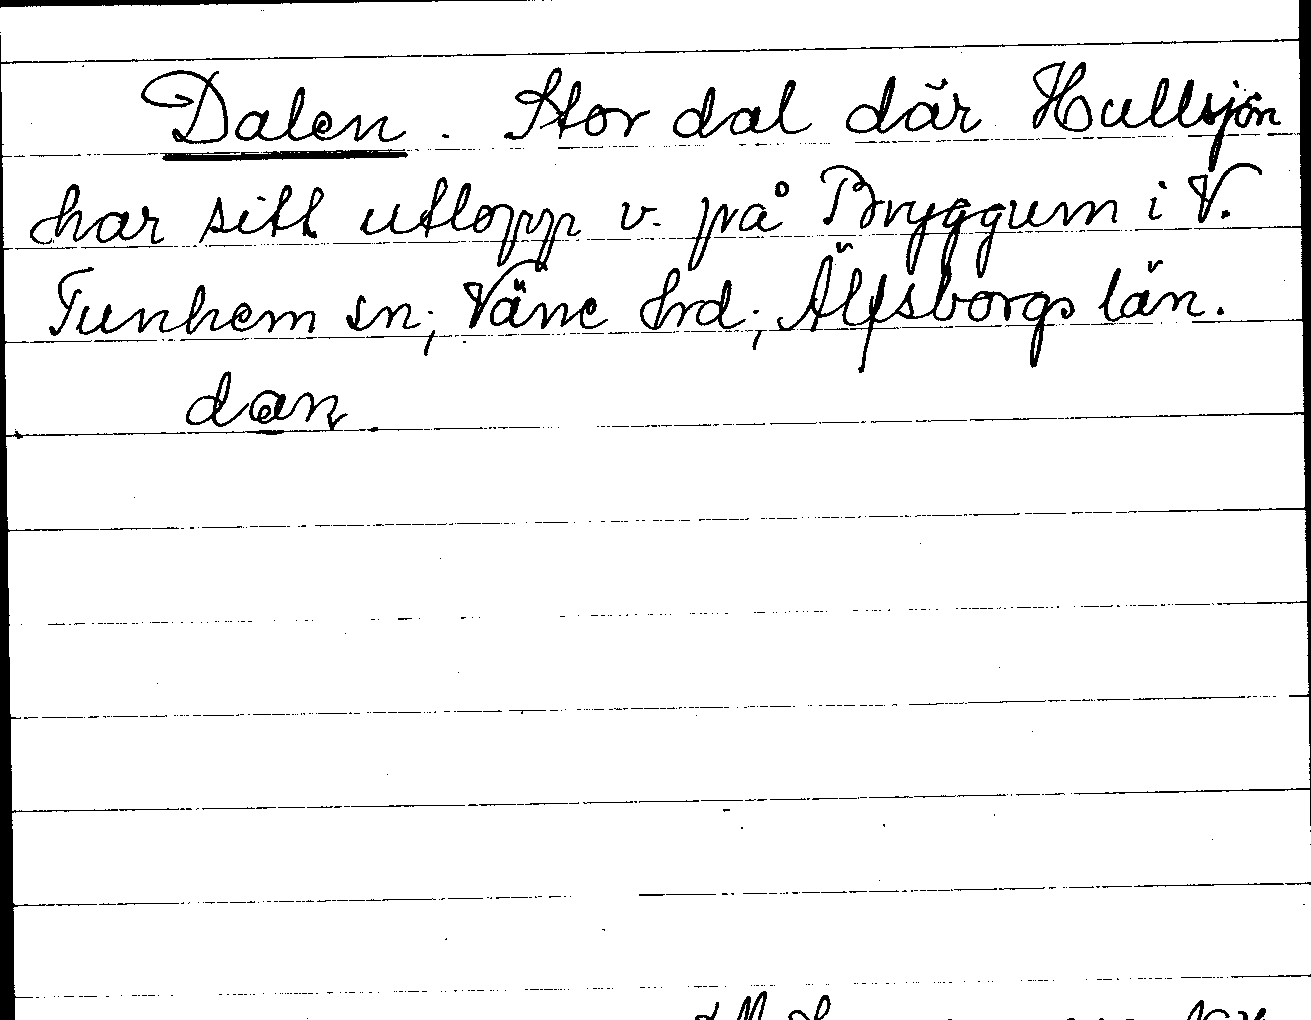 Dalen. Stor dal där Hullsjön
har sitt utlopp v. på Bryggum i V.
Tunhem sn; Väne hrd; Älfsborgs län.
dan